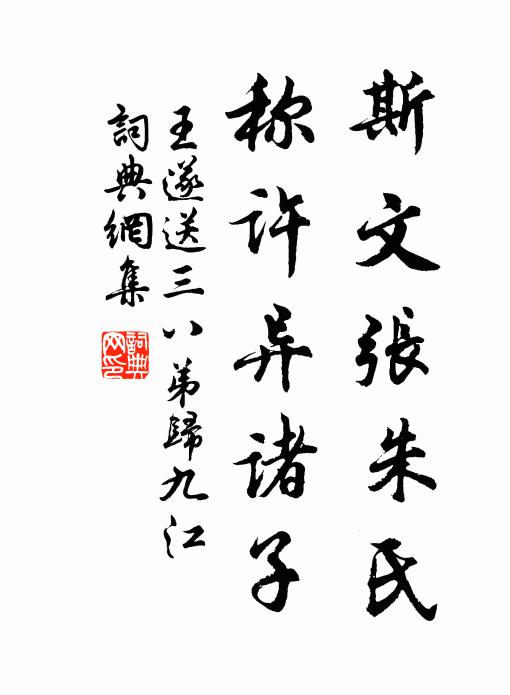 斯文張朱氏
称許异諸子
王遂送三八弟歸九江
詞典網集
詞典
网印